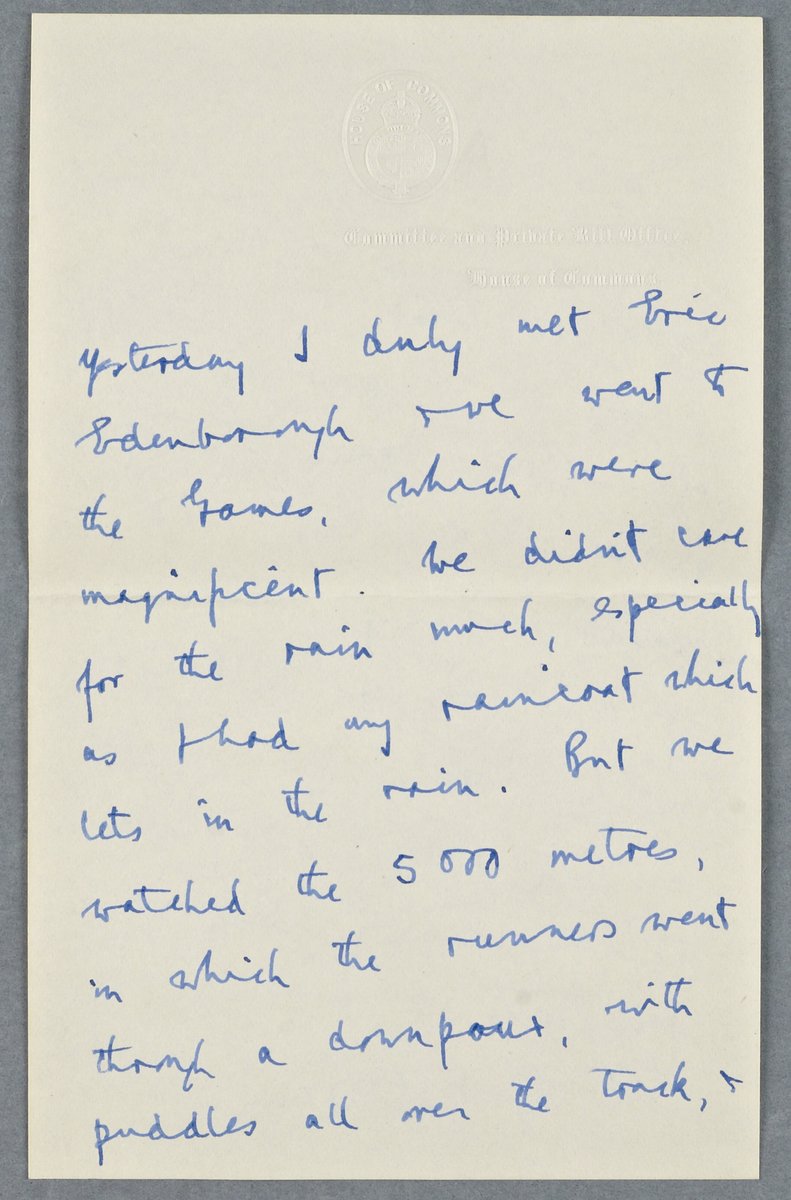 HOUSE OF COMMONS
Committee and Private Bill Office
House of Commons
Yesterday I duly met Eric
Edenborough & we went to
the Games, which were
magnificent. We didn't care
for the rain much, especially
as I had my raincoat which
lets in the rain. But we
watched the 5000 metres,
in which the runners went
through a downpour, with
puddles all over the track, &